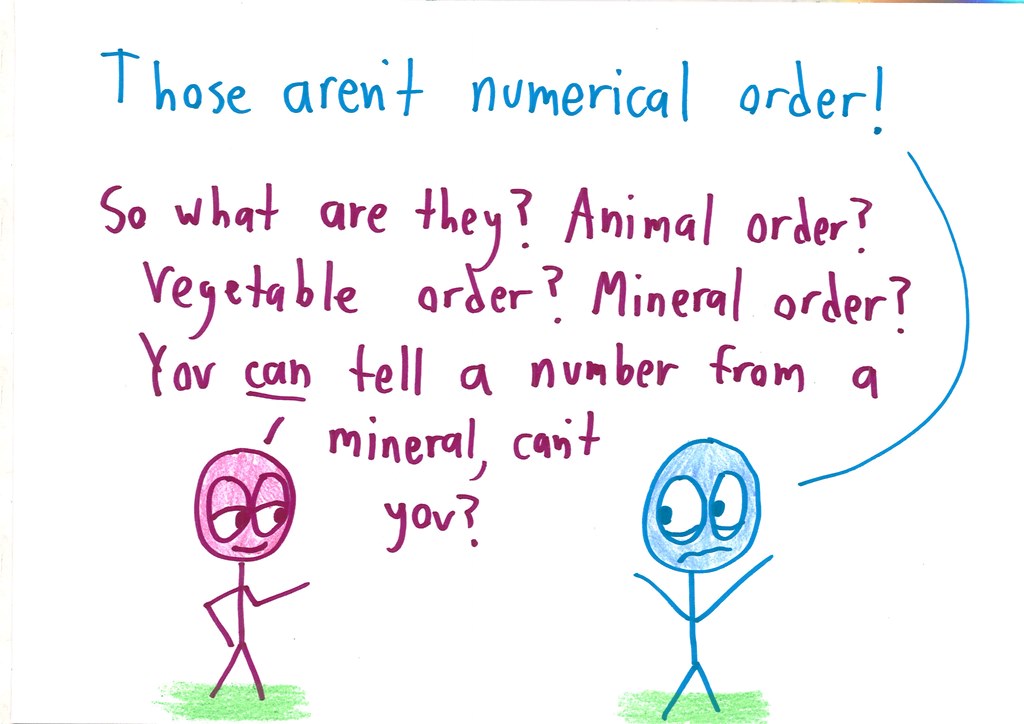 Those aren't numerical order!
So what are they? Animal order?
Vegetable order? Mineral order?
You can tell a number from a
mineral, can't
you?